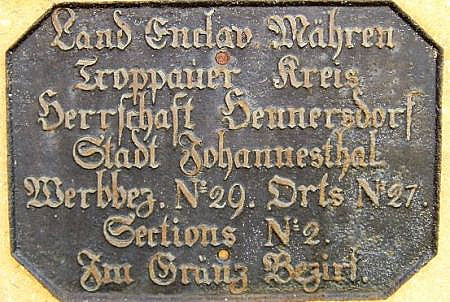 Land Enclav. Mähren
Troppauer Kreis
Herrschaft Hennersdorf
Stadt Johannesthal
Werbbez. Nº 29. Orts Nº 27.
Sections Nº 2.
Im Gränz Bezirk.